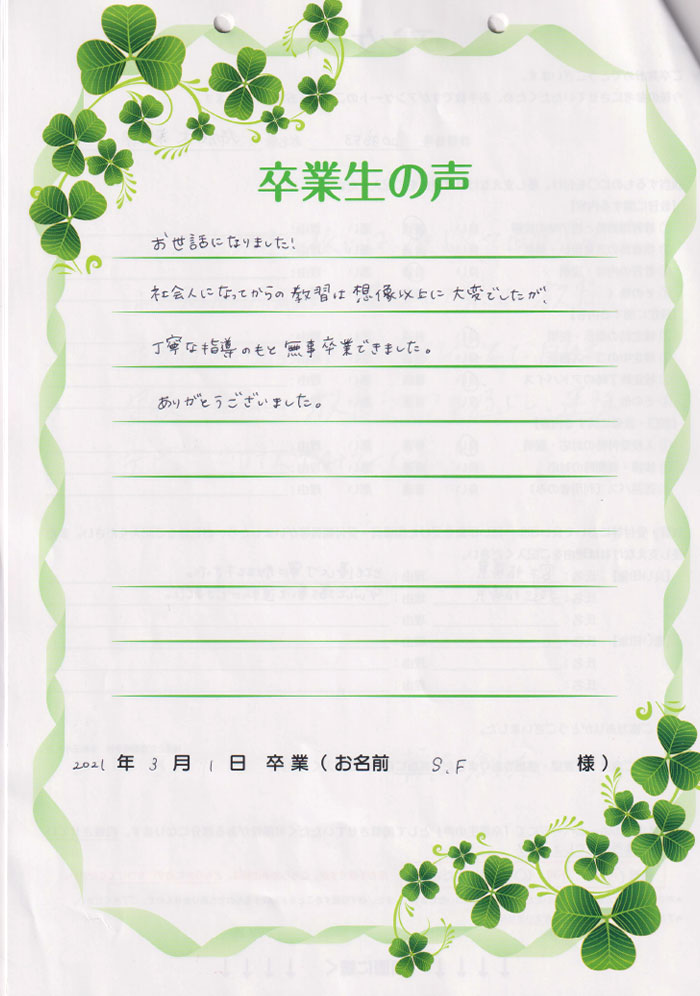 卒業生の声
お世話になりました!
社会人になってからの教習は想像以上に大変でしたが、
丁寧な指導のもと無事卒業できました。
ありがとうございました。
2021年3月1日 卒業(お名前 S.F 様)